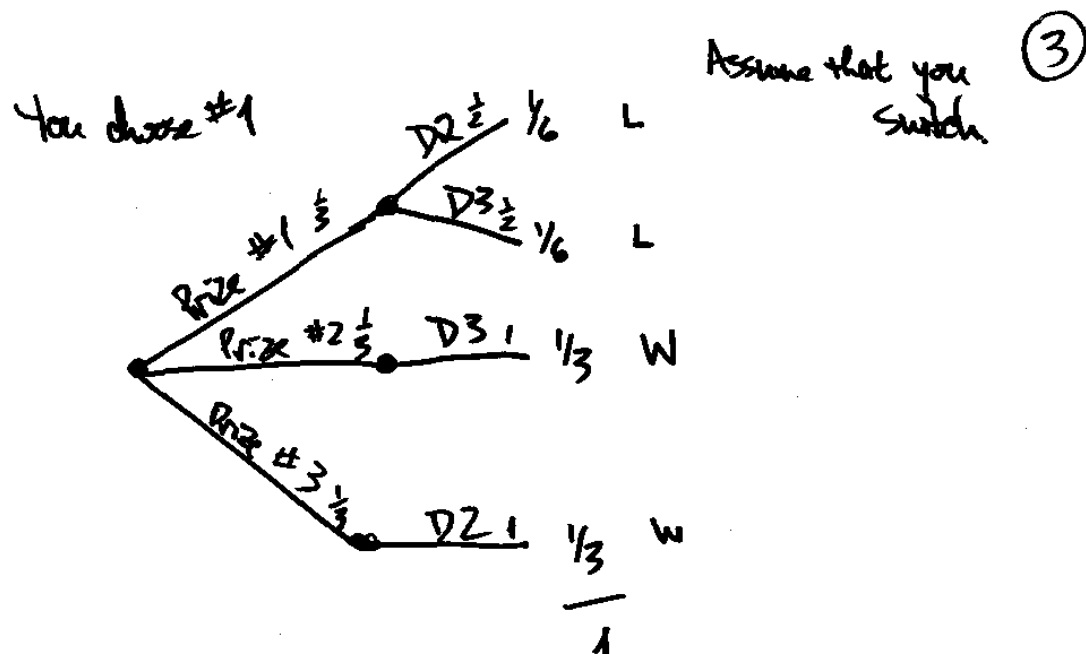 Assume that you ③
switch.
You choose #1
D2 1/2 1/6 L
Prize #1 1/3
D3 1/2 1/6 L
Prize #2 1/3 D3 1 1/3 W
Prize #3 1/3
D2 1 1/3 W
1